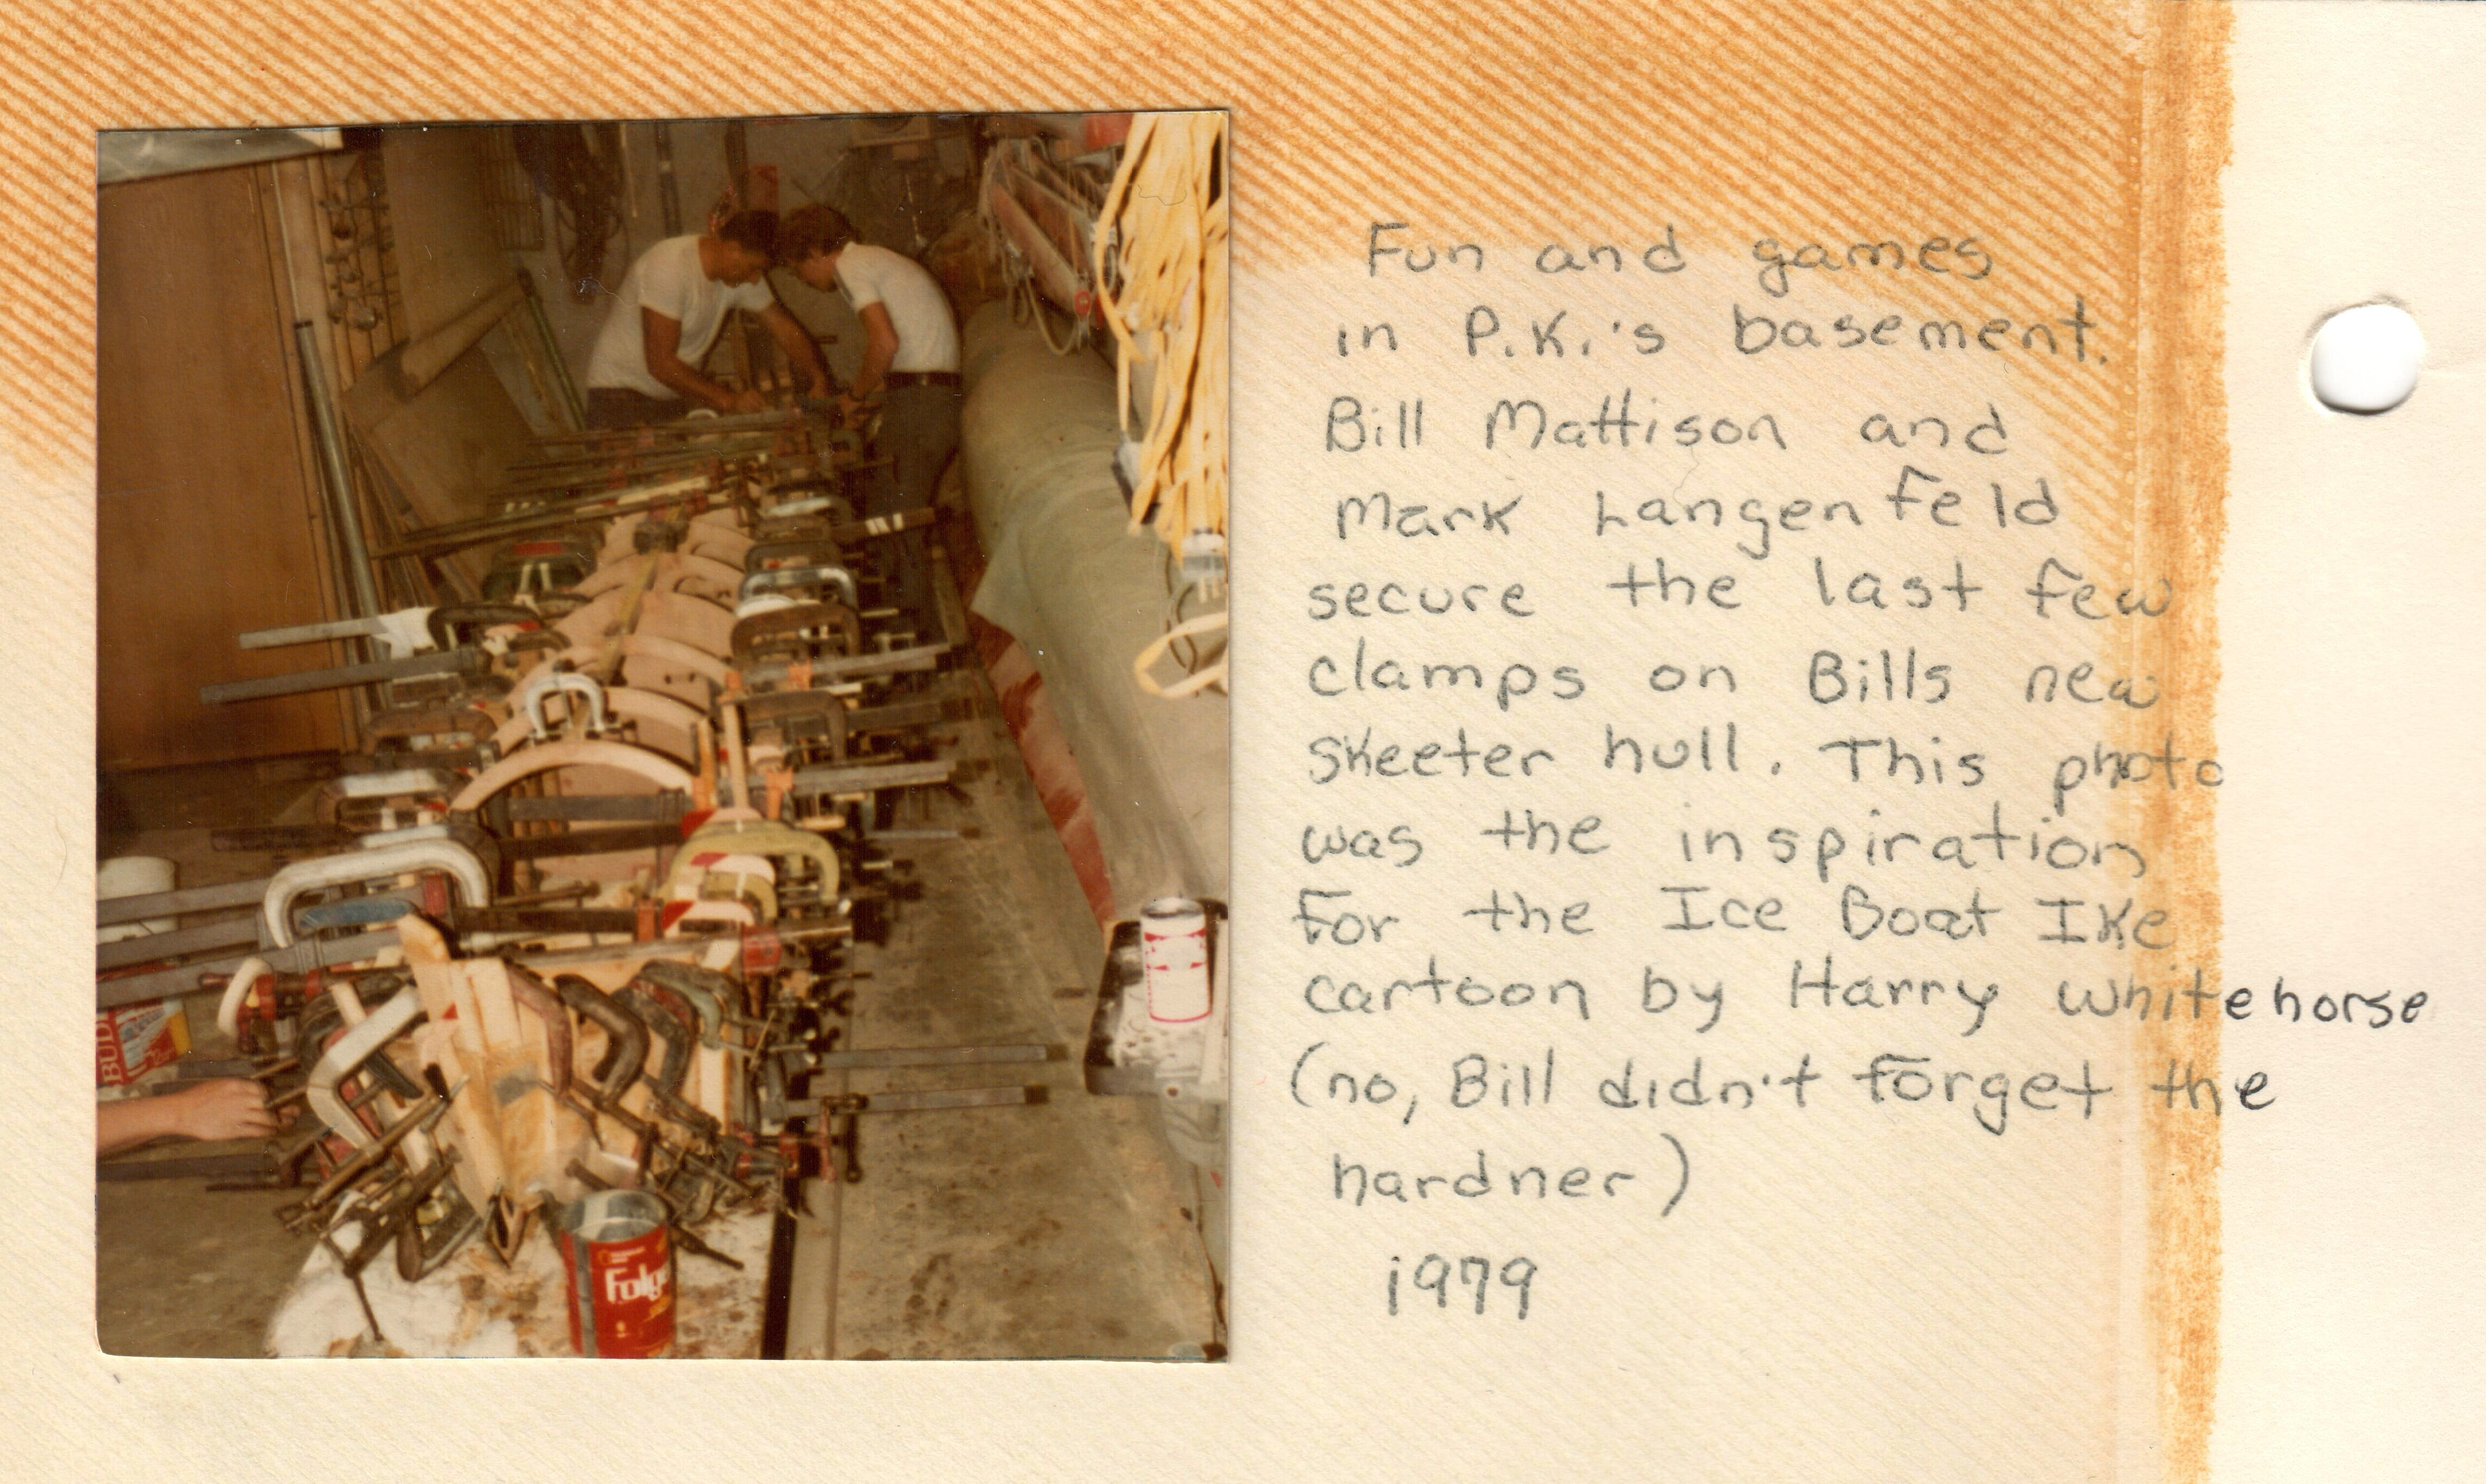 Fun and games
in P.K.'s basement.
Bill Mattison and
Mark Langenfeld
secure the last few
clamps on Bills new
skeeter hull. This photo
was the inspiration
for the Ice Boat Ike
cartoon by Harry Whitehorse
(no, Bill didn't forget the
hardner)
1979
BUD
Folge